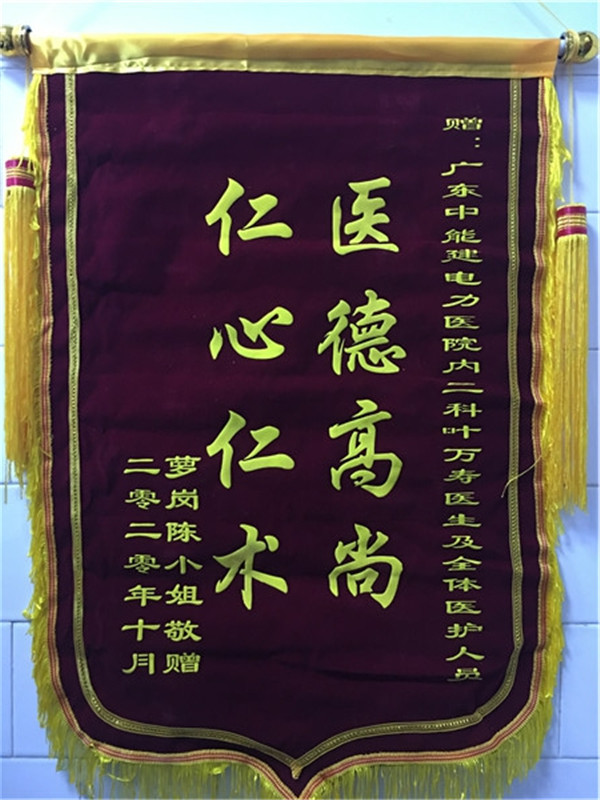 赠：广东中能建电力医院内二科叶万寿医生及全体医护人员
医德高尚
仁心仁术
萝岗陈小姐敬赠
二零二零年十月